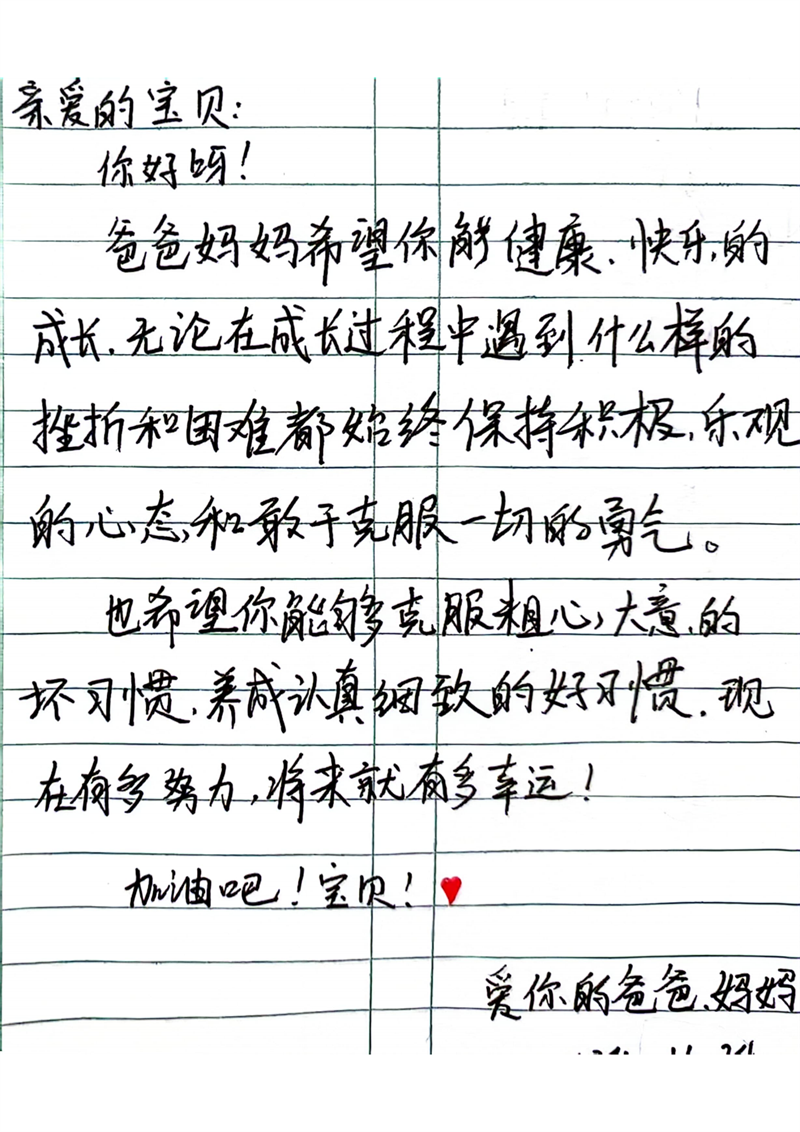 亲爱的宝贝：
你好呀！
爸爸妈妈希望你能健康、快乐的
成长，无论在成长过程中遇到什么样的
挫折和困难都始终保持积极、乐观
的心态和敢于克服一切的勇气。
也希望你能够克服粗心、大意的
坏习惯，养成认真细致的好习惯，现
在有多努力，将来就有多幸运！
加油吧！宝贝！
爱你的爸爸、妈妈